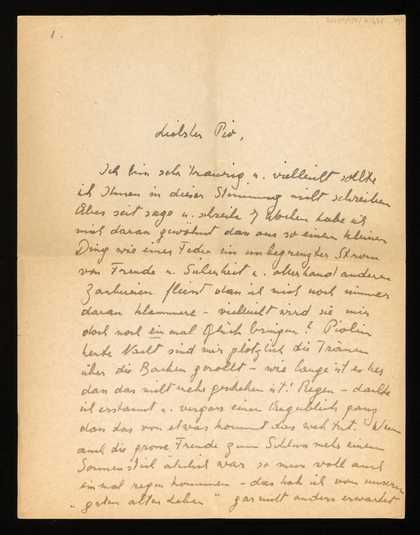 1.
Liebster Pio,
Ich bin sehr traurig u. vielleicht sollte
ich Ihnen in dieser Stimmung nicht schreiben
Aber seit sage u. schreibe 7 Wochen habe ich
mich daran gewöhnt dass aus so einem kleinen
Ding wie einer Feder ein unbegrenzter Strom
von Freude u. Sicherheit u. allerhand anderen
Zaubereien fliesst dass ich mich noch immer
daran klammere - vielleicht wird sie mir
doch noch ein mal Glück bringen?
heute Nacht sind mir plötzlich die Tränen
über die Backen gerollt - wie lange ist es her
dass das nicht mehr geschehen ist! Regen - dachte
ich erstaunt u. vergass einen Augenblick ganz
dass das von etwas kommt das weh tut.
auch die grosse Freude zum Schluss mehr einem
ähnlich war so muss wohl auch
einmal regen kommen - das hab ich von unserem
"guten alten Leben" gar nicht anders erwartet